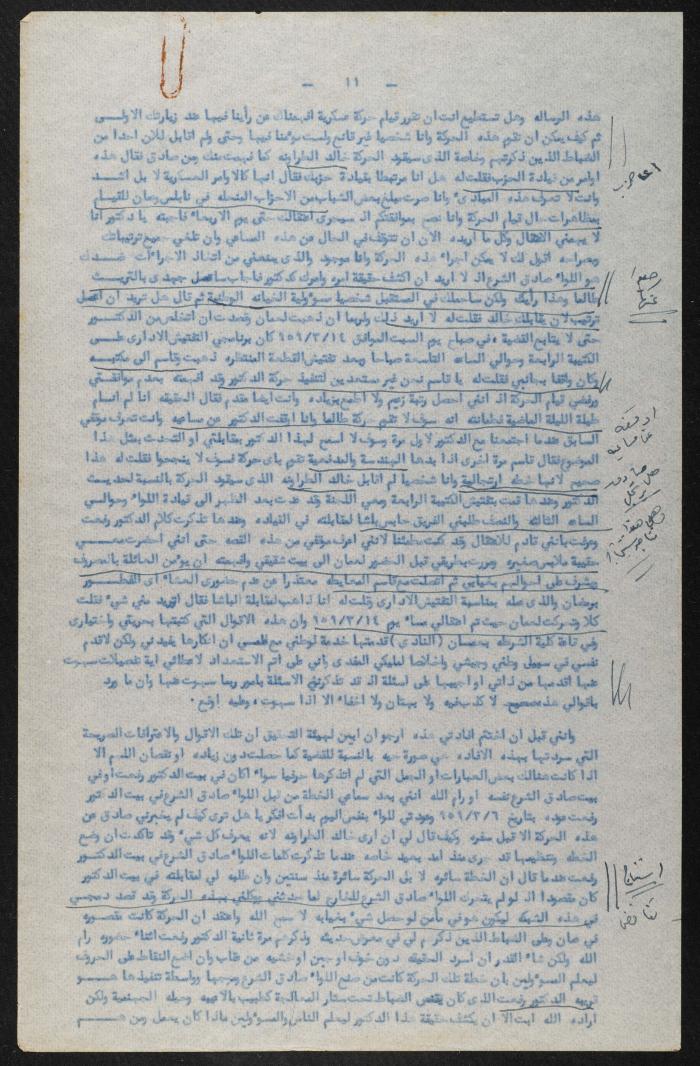 - ١١ -
هذه الرساله وهل تستطيع انت ان تقرر قيام حركة عسكرية اقبضناك عن رأينا فيها عند زيارتك الاولى
ثم كيف يمكن ان تقوم هذه الحركة وانا شخصيا غير قانع ولست مؤمنا فيها وحتى ولم اقابل للان احدا من
الضباط الذين ذكرتهم وخاصة الذى سيقود الحركة خالد الطراونه كما فهمت منك ومن صادق فقال هذه
اوامر من قيادة الحزب فقلت له هل انا مرتبطا بقيادة حزبك فقال انها كالاوامر العسكرية لا بل اشد
وانت لا تعرف هذه المبادىء وانا صرت مبلغ بعض الشباب من الاحزاب المنحله في نابلس وعمان للقيام
بمظاهرات حال قيام الحركة وانا نصح بموافقتكم الـ سيجرى اعتقالك حتى يوم الاربعاء فاجبته يا دكتور انا
لا يهمني الاعتقال وكل ما اريده الان ان تتوقف في الحال عن هذه المساعي وان تلغي جميع ترتيباتك
وبصراحه اقول لك لا يمكن اجراء هذه الحركة وانا موجود والذى يمنعني من اتخاذ الاجراءآت ضدك
هو اللواء صادق الشرع اذ لا اريد ان اكشف حقيقة امره وامرك كدكتور فاجاب سأعمل جهدى بالتريث
طالما وهذا رأيك ولكن ساحملك في المستقبل شخصيا مسؤولية الخيانه الوطنية ثم قال هل تريد ان اعمل
ترتيب لان يقابلك خالد فقلت له لا اريد ذلك ولربما ان ذهبت لعمان وقصدت ان اتخلص من الدكتور
حتى لا يتابع القضية، في صباح يوم السبت الموافق ١٥٩/٣/١٤ كان برنامجي التفتيش الادارى على
الكتيبة الرابعة وحوالي الساعه التاسعة صباحا وبعد تفتيش القطعة المنتظره ذهبت وقاسم الى مكتبه
وكان واقفا بجانبي فقلت له يا قاسم نحن غير مستعدين لتنفيذ حركة الدكتور وقد اقنعته بعدم موافقتي
ورفضي قيام الحركة اذ انني احمل رتبة زعيم ولا اطمع بزياده وانت ايضا مقدم فقال الحقيقه انا لم انام
طيلة الليلة الماضية فطمأنته انه سوف لا تقوم حركة طالما وانا اوقفت الدكتور عن مساعيه وانت تعرف موقفي
السابق عندما اجتمعنا مع الدكتور لاول مرة وسوف لا اسمح لهذا الدكتور بمقابلتي او التحدث بمثل هذا
الموضوع فقال قاسم مرة اخرى اذا بدها الهندسة والمدفعية تقوم باى حركة فسوف لا ينجحوا فقلت له هذا
صحيح لانها خطه ارتجالية وانا شخصيا لم اقابل خالد الطراونه الذى سيقود الحركة بالنسبة لحديث
الدكتور وعندها قمت بتفتيش الكتيبة الرابعة ومعي اللجنة وقد عدت بعد الظهر الى قيادة اللواء وحوالي
الساعه الثالثه والنصف طلبني الفريق حابس باشا لمقابلته في القياده وعندها تذكرت كلام الدكتور رفعت
وعرفت بانني قادم للاعتقال وقد كنت مطمئنا لانني اعرف موقفي من هذه القصه حتى انني احضرت معي
حقيبة ملابس صغيره ومررت بطريقي قبل الحضور لعمان الى بيت شقيقي واقنعته ان يؤمن العائلة بالمصروف
ويشرف على احوالهم بغيابي ثم اتصلت مع قاسم المعايطه معتذرا عن عدم حضورى العشاء اى الفطور
برمضان والذى عمله بمناسبة التفتيش الادارى وقلت له انا ذاهب لمقابلة الباشا فقال اتريد مني شيء فقلت
كلا وتحركت لعمان حيث تم اعتقالي مساء يوم ١٥٩/٣/١٤ وان هذه الاقوال التي كتبتها بحريتي واختيارى
وفي قاعة كلية الشرطه بحسان (النادى) قدمتها خدمة لوطني مع علمي ان انكارها يفيدني ولكن لاقدم
نفسي في سبيل وطني وجيشي واخلاصا لمليكي المفدى وانني على اتم الاستعداد لاعطائي اية تفصيلات سهوت
عنها اقدمها من ذاتي او اجيبها على اسئلة اذ قد تذكرني الاسئلة بامور ربما سهوت عنها وان ما ورد
باقوالي هذه صحيح لا كذب فيه ولا بهتان ولا اخفاء الا اذا سهوت، وعليه اوقع.
وانني قبل ان اختتم افادتي هذه ارجو ان ابين لهيئة التحقيق ان تلك الاقوال والاعترافات الصريحة
التي سردتها بهذه الافاده هي صورة حيه بالنسبة للقضية كما حصلت دون زياده او نقصان اللهم الا
اذا كانت هنالك بعض العبارات او الجمل التي لم اتذكرها حرفيا سواء اكان في بيت الدكتور رفعت او في
بيت صادق الشرع نفسه او رام الله انني بعد سماعي الخطة من قبل اللواء صادق الشرع في بيت الدكتور
رفعت عوده بتاريخ ١٥٩/٣/٦ وعودتي للواء بنفس اليوم بدأت افكر يا هل ترى كيف لم يخبرني صادق عن
هذه الحركة الا قبل سفره وكيف قال لي ان ارى خالد الطراونه لانه يعرف كل شيء وقد تأكدت ان وضع
الخطه وتنظيمها قد جرى منذ امد بعيد خاصه عندما تذكرت كلمات اللواء صادق الشرع في بيت الدكتور
رفعت عندما قال ان الخطة سائره لا بل الحركة سائرة منذ سنتين وان طلبه لي لمقابلته في بيت الدكتور
كان مقصودا اذ لو لم يتحرك اللواء صادق الشرع للخارج لما حدثني وكلفني بهذه الحركة وقد قصد دمجي
في هذه الشبكه ليكون هو في مأمن لو حصل شيء بغيابه لا سمح الله واعتقد ان الحركة كانت مقصوره
في عمان وعلى الضباط الذين ذكرهم لي في معرض حديثه وذكرهم مرة ثانية الدكتور رفعت اثناء حضوره رام
الله ولكن شاء القدر ان اسرد الحقيقه دون خوف او جبن او خشيه من عقاب وان اضع النقاط على الحروف
ليعلم المسؤولين بان خطة تلك الحركة كانت من صنع اللواء صادق الشرع ومرجعها وواسطة تنفيذها هو
قريبه الدكتور رفعت الذى كان يقتنص الضباط تحت ستار المعالجة كطبيب بالاعيبه وحيله الجهنمية ولكن
اراده الله ابت الا ان يكشف حقيقة هذا الدكتور ليعلم الناس والمسؤولين ماذا كان يعمل ومن هم
استنتاج